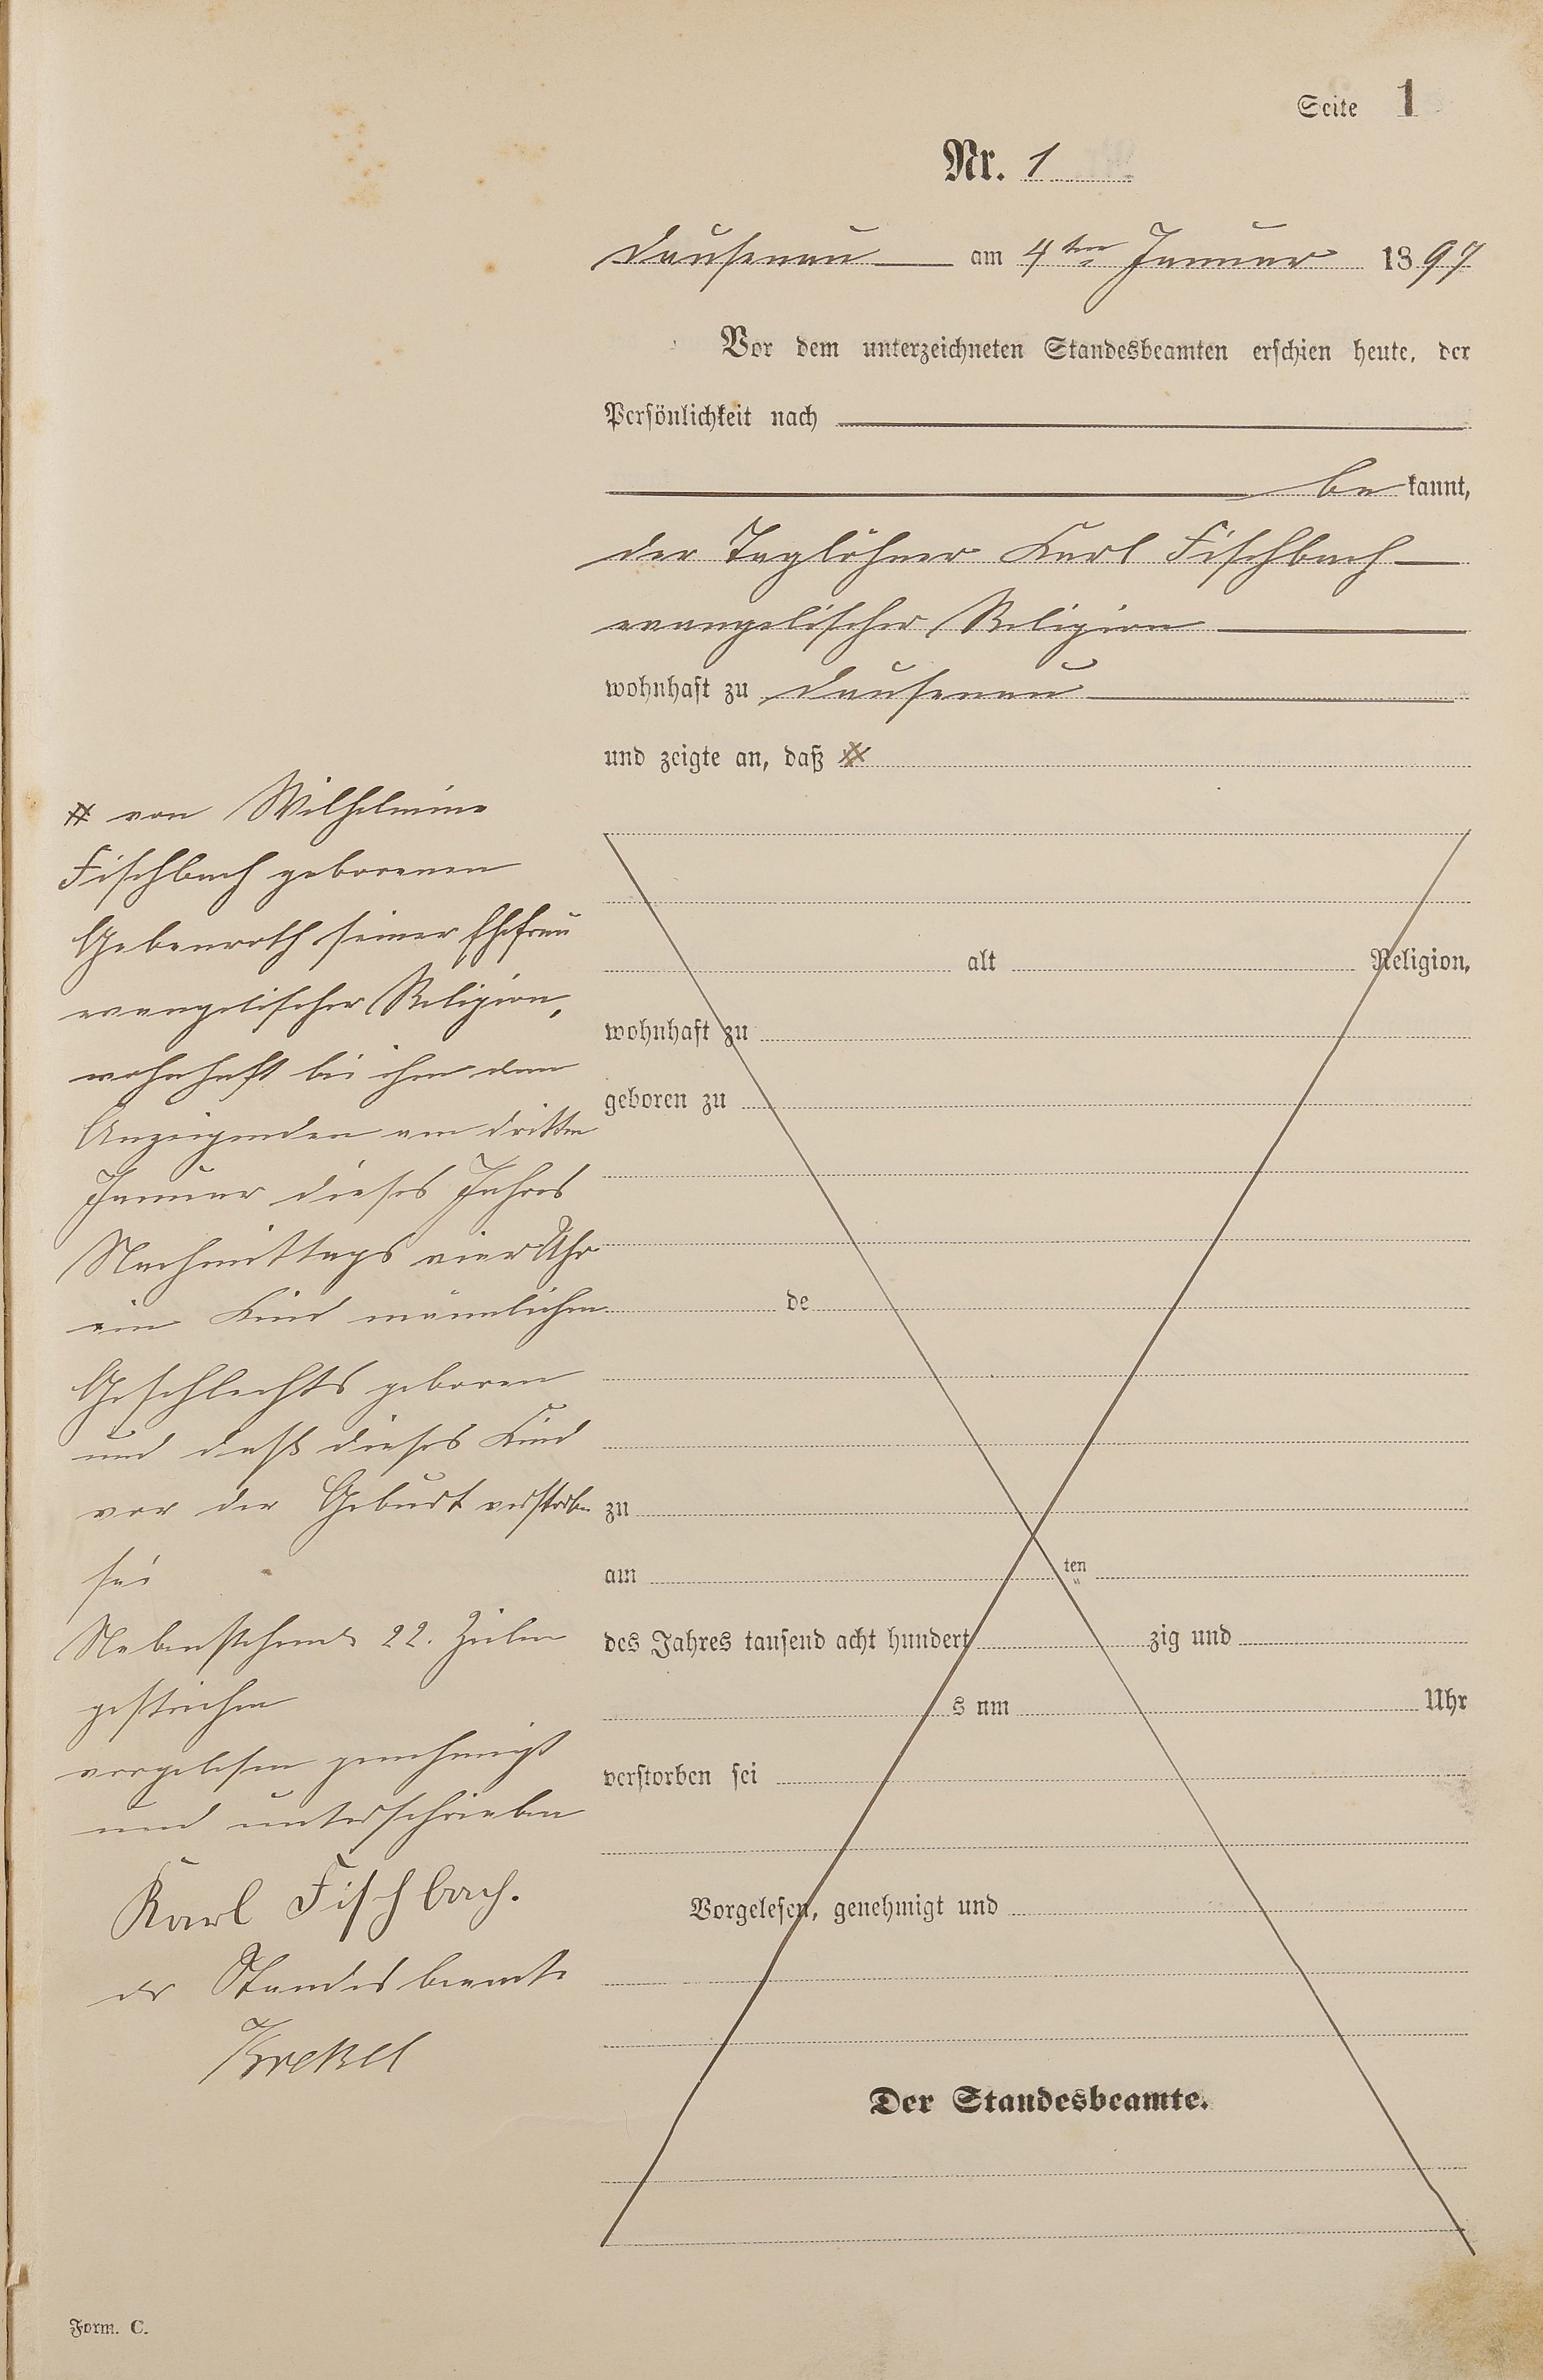 Seite 1
Nr. 1
Dausenau am 4ten Januar 1897
Vor dem unterzeichneten Standesbeamten erschien heute, der
Persönlichkeit nach
be kannt,
der Taglöhner Karl Fischbach
evangelischer Religion
wohnhaft zu Dausenau
und zeigte an, daß #
# von Wilhelmine
Fischbach geborenen
Gebenroth seiner Ehefrau
evangelischer Religion,
wohnhaft bei ihm dem
Anzeigenden am dritten
Januar dieses Jahres
Nachmittags vier Uhr
ein Kind männlichen
Geschlechts geboren
und daß dieses Kind
vor der Geburt verstorben
sei
Nebenstehende 22. Zeilen
gestrichen
vorgelesen genehmigt
und unterschrieben
Karl Fischbach.
der Standesbeamte
Krekel
alt Religion,
wohnhaft zu
geboren zu
de
zu
am ten
des Jahres tausend acht hundert zig und
s um Uhr
verstorben sei
Vorgelesen, genehmigt und
Der Standesbeamte.
Form. C.